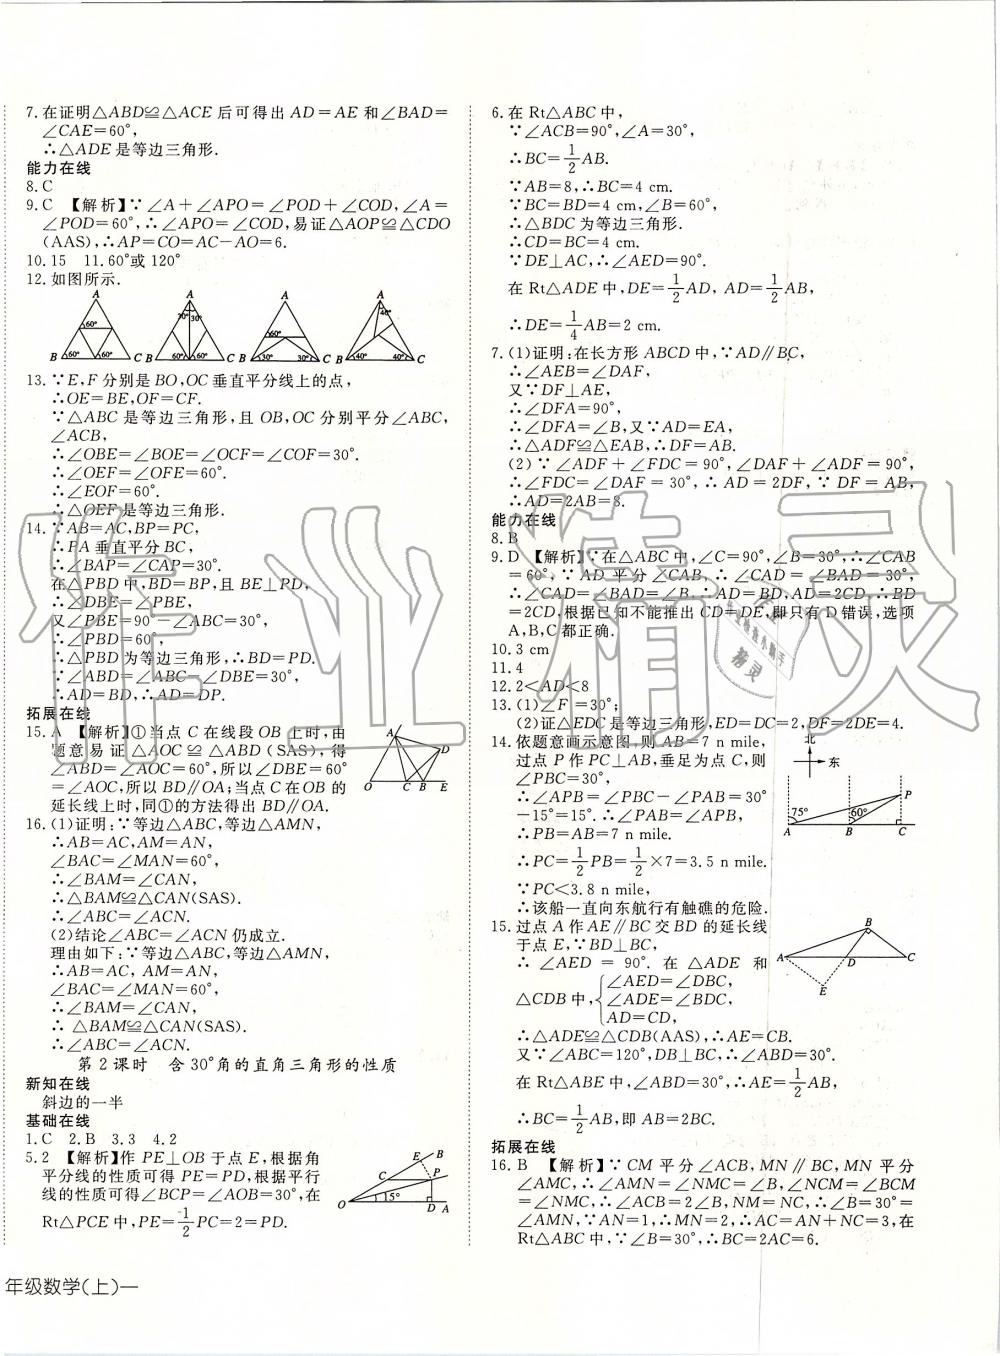 7.在证明△ABD≌△ACE后可得出AD=AE和∠BAD=
∠CAE=60°,
∴△ADE是等边三角形.
能力在线
8.C
9.C 【解析】∵∠A+∠APO=∠POD+∠COD,∠A=
∠POD=60°,∴∠APO=∠COD,易证△AOP≌△CDO
(AAS),∴AP=CO=AC-AO=6.
10.15 11.60°或120°
12.如图所示.
A A A A
60° 30° 30° 40°
B 60° 60° C 60° 60° C B 30° 30° C B 40° 40° C
13.∵E,F分别是BO,OC垂直平分线上的点,
∴OE=BE,OF=CF.
∵△ABC是等边三角形,且OB,OC分别平分∠ABC,
∠ACB,
∴∠OBE=∠BOE=∠OCF=∠COF=30°.
∴∠OEF=∠OFE=60°.
∴∠EOF=60°.
∴△OEF是等边三角形.
14.∵AB=AC,BP=PC,
∴PA垂直平分BC,
∴∠BAP=∠CAP=30°.
在△PBD中,BD=BP,且BE⊥PD,
∴∠DBE=∠PBE,
又∠PBE=90°-∠ABC=30°,
∴∠PBD=60°,
∴△PBD为等边三角形,∴BD=PD.
∵∠ABD=∠ABC-∠DBE=30°,
∴AD=BD,∴AD=DP.
拓展在线
15.A 【解析】①当点C在线段OB上时,由
题意易证△AOC≌△ABD(SAS),得
∠ABD=∠AOC=60°,所以∠DBE=60°
=∠AOC,所以BD∥OA;当点C在OB的
延长线上时,同①的方法得出BD∥OA.
A D O C B E
16.(1)证明:∵等边△ABC,等边△AMN,
∴AB=AC,AM=AN,
∠BAC=∠MAN=60°,
∴∠BAM=∠CAN,
∴△BAM≌△CAN(SAS).
∴∠ABC=∠ACN.
(2)结论∠ABC=∠ACN仍成立.
理由如下:∵等边△ABC,等边△AMN,
∴AB=AC,AM=AN,
∠BAC=∠MAN=60°,
∴∠BAM=∠CAN,
∴△BAM≌△CAN(SAS).
∴∠ABC=∠ACN.
第2课时 含30°角的直角三角形的性质
新知在线
斜边的一半
基础在线
1.C 2.B 3.3 4.2
5.2 【解析】作PE⊥OB于点E,根据角
平分线的性质可得PE=PD,根据平行
线的性质可得∠BCP=∠AOB=30°,在
Rt△PCE中,PE=1/2PC=2=PD.
E B C P O 15° D A
6.在Rt△ABC中,
∵∠ACB=90°,∠A=30°,
∴BC=1/2AB.
∵AB=8,∴BC=4 cm.
∵BC=BD=4 cm,∠B=60°,
∴△BDC为等边三角形.
∴CD=BC=4 cm.
∵DE⊥AC,∴∠AED=90°.
在Rt△ADE中,DE=1/2AD, AD=1/2AB,
∴DE=1/4AB=2 cm.
7.(1)证明:在长方形ABCD中,∵AD∥BC,
∴∠AEB=∠DAF,
又∵DF⊥AE,
∴∠DFA=90°,
∴∠DFA=∠B,又∵AD=EA,
∴△ADF≌△EAB,∴DF=AB.
(2)∵∠ADF+∠FDC=90°,∠DAF+∠ADF=90°,
∴∠FDC=∠DAF=30°,∴AD=2DF,∵DF=AB,
∴AD=2AB=8.
能力在线
8.B
9.D 【解析】∵在△ABC中,∠C=90°,∠B=30°,∴∠CAB
=60°,∵AD平分∠CAB,∴∠CAD=∠BAD=30°,
∴∠CAD=∠BAD=∠B,∴AD=BD,AD=2CD,∴BD
=2CD,根据已知不能推出CD=DE,即只有D错误,选项
A,B,C都正确.
10.3 cm
11.4
12.2<AD<8
13.(1)∠F=30°;
(2)证△EDC是等边三角形,ED=DC=2,DF=2DE=4.
14.依题意画示意图,则AB=7 n mile,
过点P作PC⊥AB,垂足为点C,则
∠PBC=30°,
∴∠APB=∠PBC-∠PAB=30°
-15°=15°.∴∠PAB=∠APB,
∴PB=AB=7 n mile.
∴PC=1/2PB=1/2×7=3.5 n mile.
∵PC<3.8 n mile,
∴该船一直向东航行有触礁的危险.
北 东
75° 60° P A B C
15.过点A作AE∥BC交BD的延长线
于点E,∵BD⊥BC,
∴∠AED=90°.在△ADE和
△CDB中,{∠AED=∠DBC,
∠ADE=∠BDC,
AD=CD,
∴△ADE≌△CDB(AAS),∴AE=CB.
又∵∠ABC=120°,DB⊥BC,∴∠ABD=30°.
在Rt△ABE中,∠ABD=30°,∴AE=1/2AB,
∴BC=1/2AB,即AB=2BC.
B A D C E
拓展在线
16.B 【解析】∵CM平分∠ACB,MN∥BC,MN平分
∠AMC,∴∠AMN=∠NMC=∠B,∠NCM=∠BCM
=∠NMC,∴∠ACB=2∠B,NM=NC,∴∠B=30°=
∠AMN,∵AN=1,∴MN=2,∴AC=AN+NC=3,在
Rt△ABC中,∵∠B=30°,∴BC=2AC=6.
年级数学(上)一
作业精灵
精灵